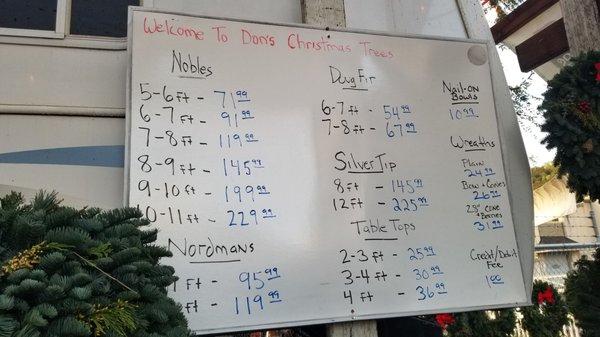 Welcome To Don's Christmas Trees
Nobles
5-6 ft - 71.99
6-7 ft - 91.99
7-8 ft - 119.99
8-9 ft - 145.99
9-10 ft - 199.99
10-11 ft - 229.99
Nordmans
ft - 95.99
ft - 119.99
Doug Fir
6-7 ft - 54.99
7-8 ft - 67.99
Silver Tip
8 ft - 145.99
12 ft - 225.99
Table Tops
2-3 ft - 25.99
3-4 ft - 30.99
4 ft - 36.99
Nail-on
Bowls
10.99
Wreaths
Plain
24.99
Bow + Cones
26.99
Cone
+ Berries
31.99
Credit/Debit
Fee
1.00